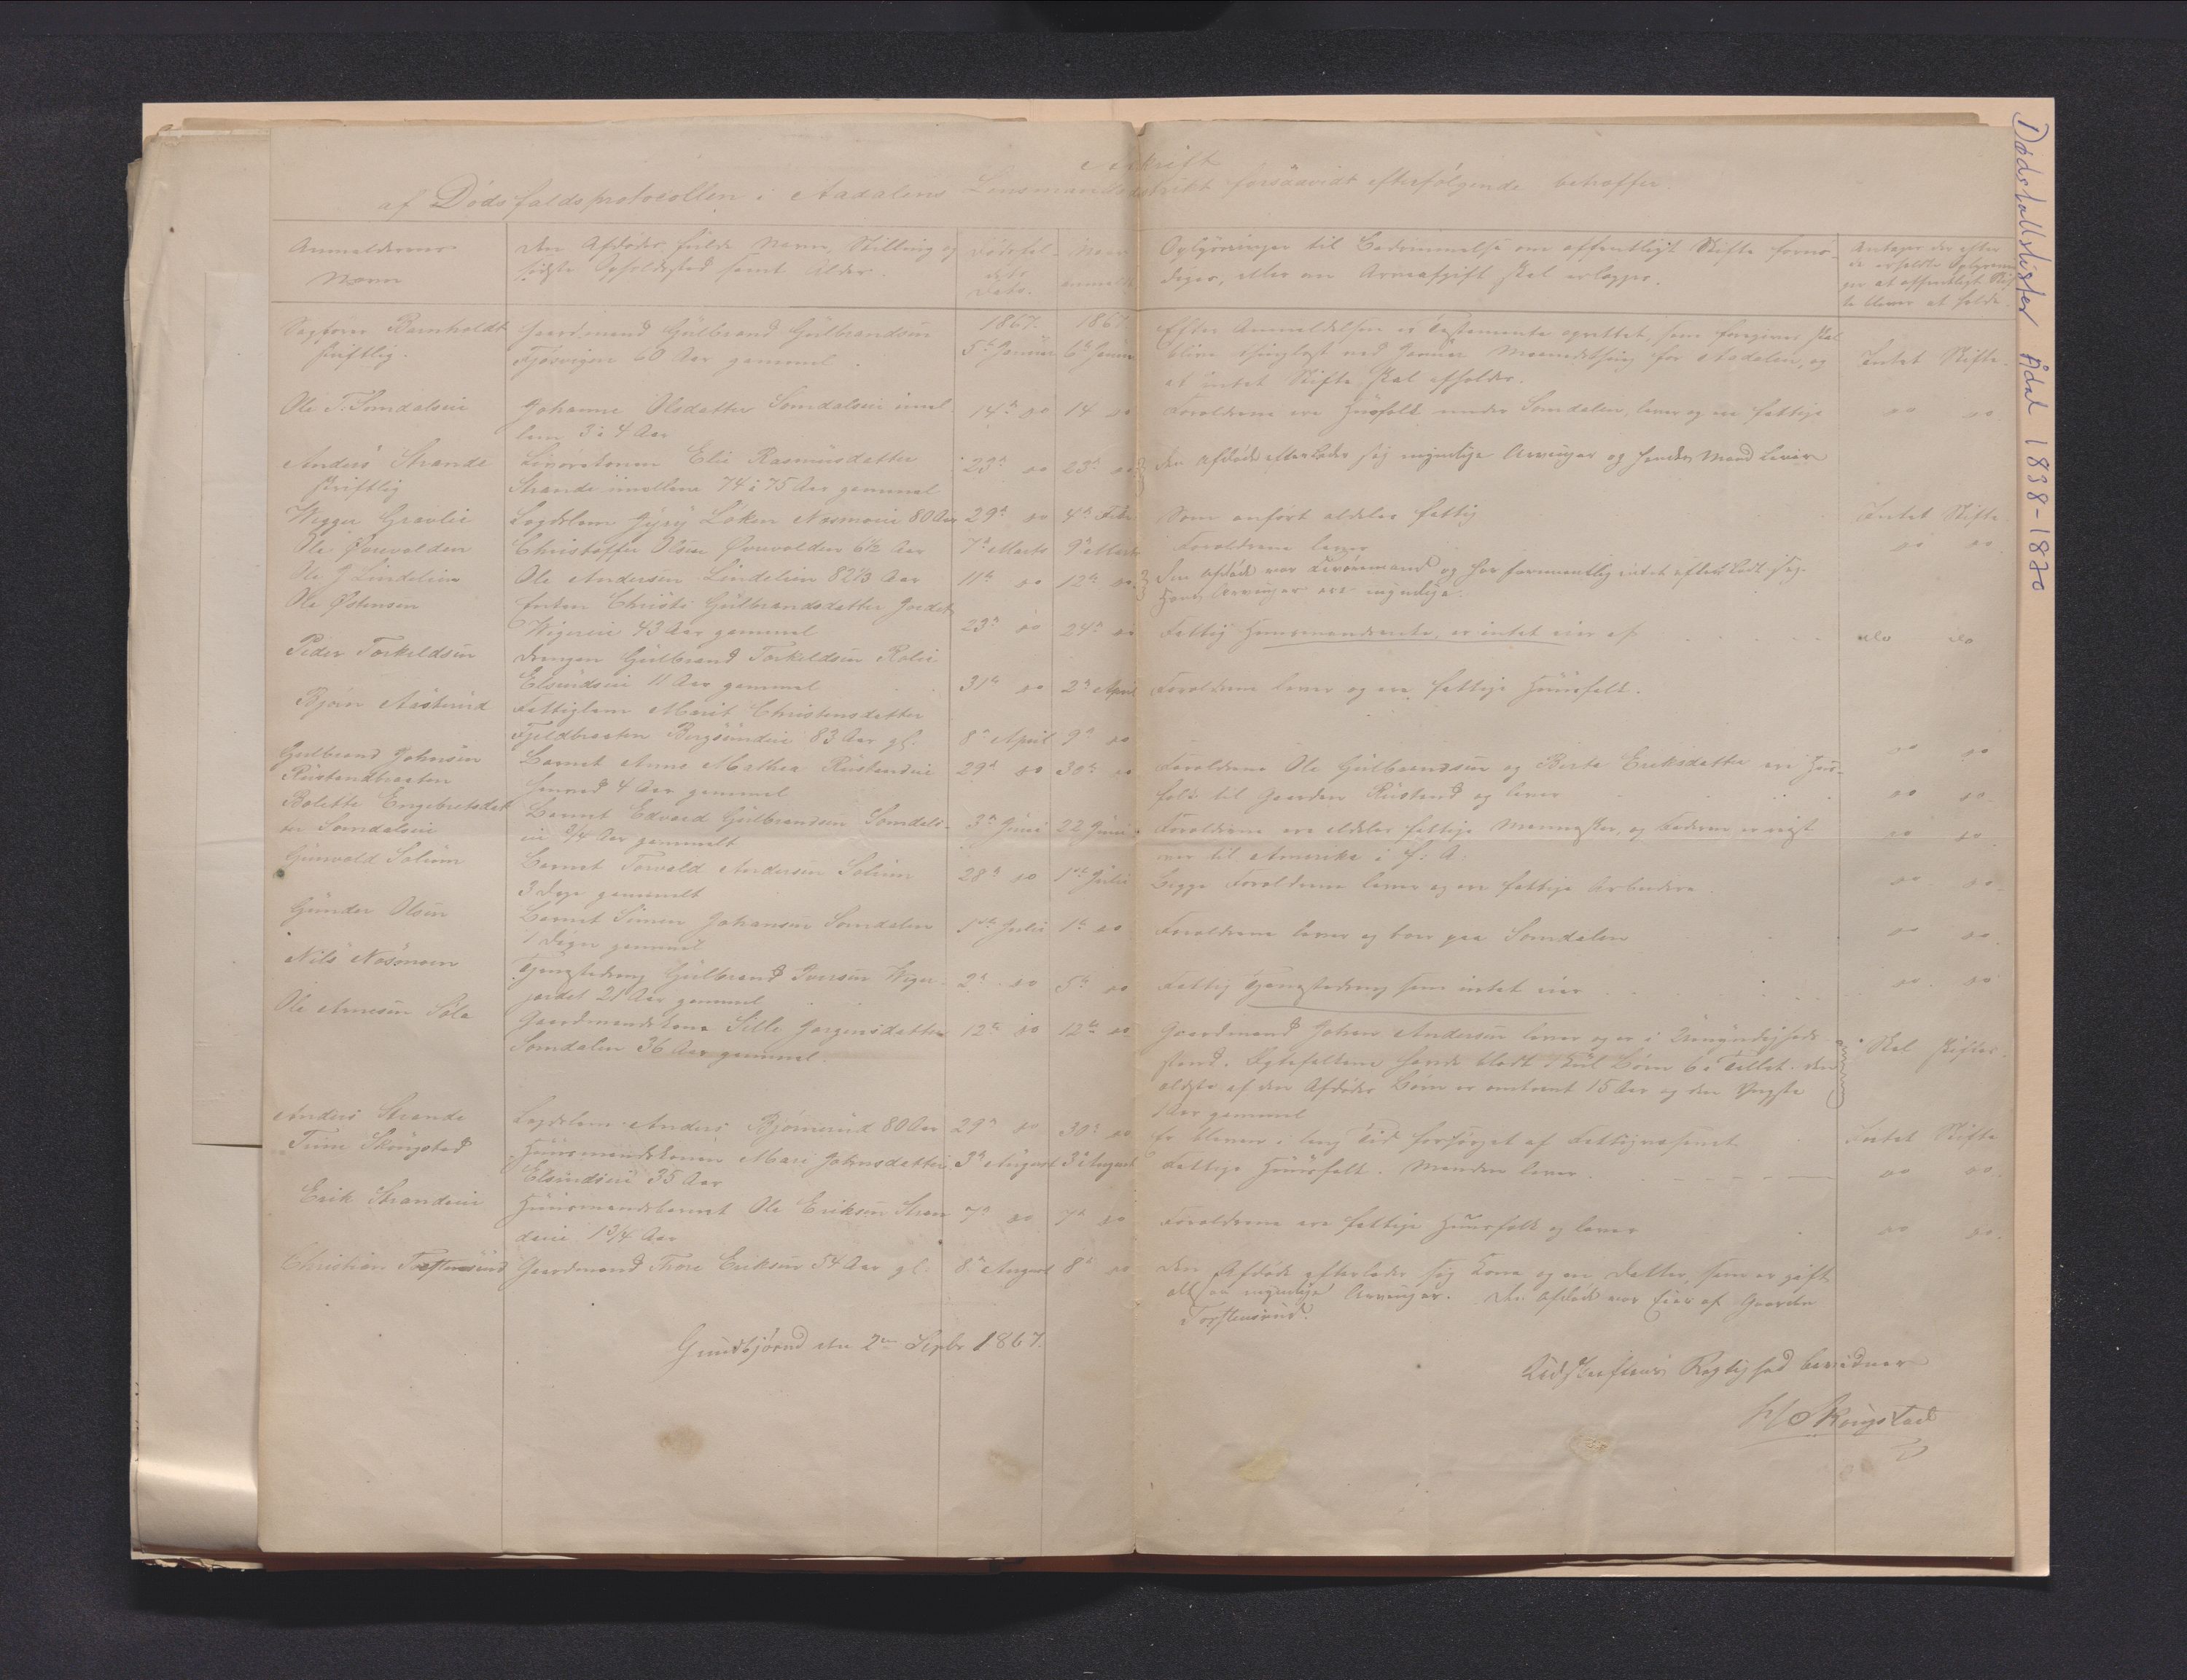 Afskrift
af Dødsfaldsprotocollen i Aadalens Lensmandsdistrikt forsaavidt efterfølgende betræffer.
Anmelderens Navn
Den Afdødes fulde Navn, Stilling og sidste Opholdssted samt Alder.
Dødsfaldets Dato.
Naar anmeldt
Oplysninger til Bedømmelse om offentligt Skifte fornødiges, eller om Arveafgift skal erlægges.
Antages der efter de erholdte Oplysninger at offentligt Skifte bliver at holde.
1867. 1867
Sagfører Barnholdt Gaardmand Gülbrand Gülbrandsen 5te Januar 6te Januar Efter Anmeldelsen er Testamente oprettet, som foregives skal
skriftlig. 60 Aar gammel. blive thinglæst ved Januar Maanedsthing for Aadalen, og Intet Skifte.
at intet Skifte skal afholdes.
Ole T. Somdalseie Johanne Olsdatter Somdalseie imel- 14de do 14 do Forældrene ere Huusfolk under Somdalen, lever og ere fattige do do
lem 3 à 4 Aar
Anders Strande Livørekonen Elie Rasmusdatter 23de do 23de do Den Afdøde efterlader sig myndige Arvinger og hendes Mand lever
skriftlig Strande imellem 74 à 75 Aar gammel
Wigger Gravlie Lægdslem Løken Næsmoeie 80 Aar 29de do 4de Febr Som anført aldeles fattig Intet Skifte
Ole Øvrevolden Christoffer Olsen Øvrevolden 6½ Aar 7de Marts 9de Marts Forældrene lever do do
Ole G Lindelien Ole Andersen Lindelien 82⅓ Aar 11te do 12te do Den Afdøde var Livøremand og har formentlig intet efterladt sig.
Hans Arvinger ere myndige.
Ole Østensen Enken Christi Gülbrandsdatter Jordet
Wigereie 43 Aar gammel 23de do 24de do Fattig Huusmandsenke, er intet eier af do do
Peder Torkeldsen Drengen Gülbrand Torkeldsen Rolie
Elsrudeie 11 Aar gammel 31te do 2den April Forældrene lever og ere fattige Huusfolk.
Bjørn Aasterud Fattiglem Marit Christensdatter
Fjeldbraaten Bergsundeie 83 Aar gl. 8de April 9de do do do
Gulbrand Johnsen Barnet Anne Mathea Rüstandeie 29de do 30te do Forældrene Ole Gülbrandsen og Berte Eriksdatter ere Huus-
Rüstandbraaten 4 Aar gammel folk til Gaarden Rüstand og lever do do
Bolette Engebretsdat- Barnet Edvard Gülbrandsen Somdals- 3de Juni 22 Juni Forældrene ere aldeles fattige Mennesker, og Faderen er reist
ter Somdalseie eie ¾ Aar gammelt over til Amerika i f: A. do do
Gunvald Solium Barnet Torvald Andersen Solium 28de do 1ste Julie Begge Forældrene lever og ere fattige Arbeidere. do do
3 Dage gammelt
Günder Olsen Barnet Simen Johansen Somdalen 1ste Julie 1te do Forældrene lever og boer paa Somdalen do do
1 Døgn gammel
Nils Næsmoen Tjenestedreng Gülbrand Iversen Wiger- 2de do 5te do Fattig Tjenestedreng som intet eier do do
jordet 21 Aar gammel
Ole Arnesen Sola Gaardmandskone Sille Jørgensdatter 12te do 12te do Gaardmand Johan Andersen lever og er i Umyndigheds-
Somdalen 36 Aar gammel. stand. Egtefolkene havde bladt Kül Børn 6 i Tallet. den Skal skiftes.
ældste af den Afdødes Børn er omtrent 15 Aar og den yngste
1 Aar gammel
Anders Strande Lægdslem Anders Bjørnerud 80 Aar 29de do 30te do Er bleven i lang Tid forsørget af Fattigvæsenet Intet Skifte
Tune Skougstad Huusmandskonen Mari Johnsdatter 3de August 3de August Fattige Huusfolk. Manden lever. do do
Elsrudeie 35 Aar
Erik Strandeie Huusmandsbarnet Ole Eriksen Stran- 7de do 7de do Forældrene ere fattige Huusfolk og lever do do
deie 1¾ Aar
Christian Torstensrud Gaardmand Thore Eriksen 54 Aar gl. 8de August 8de do Den Afdøde efterlader sig Kone og en Datter, som er gift
altsaa myndige Arvinger. Den Afdøde var Eier af Gaarden
Torstensrud.
den 2den Septbr 1867.
Rigtighed bevidner
Skougstad
Dødsfallslister Ådal 1838-1870